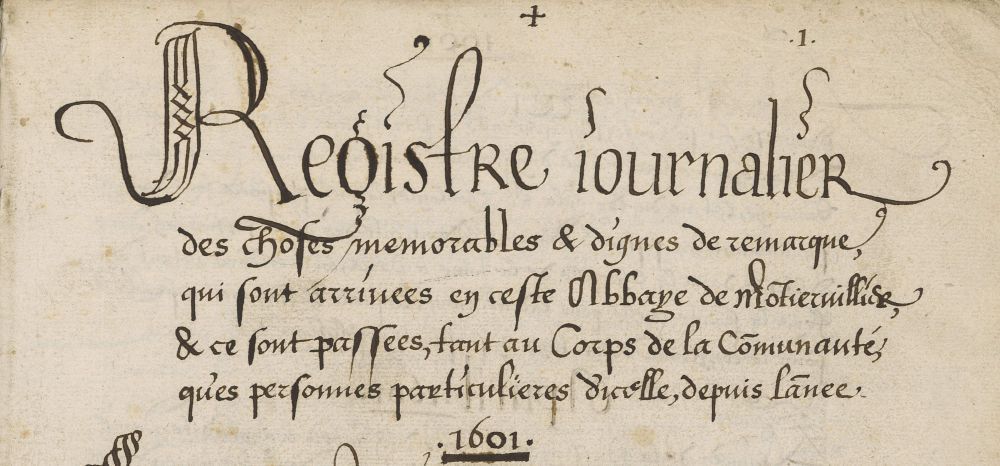 +
.1.
Registre iournalier
des choses memorables & dignes de remarque,
qui sont arriuees en ceste Abbaye de Mõtieruillier,
& ce sont passees, tant au Corps de la Cõmunauté,
qu'es personnes particulieres d'icelle, depuis lãnee.
.1601.